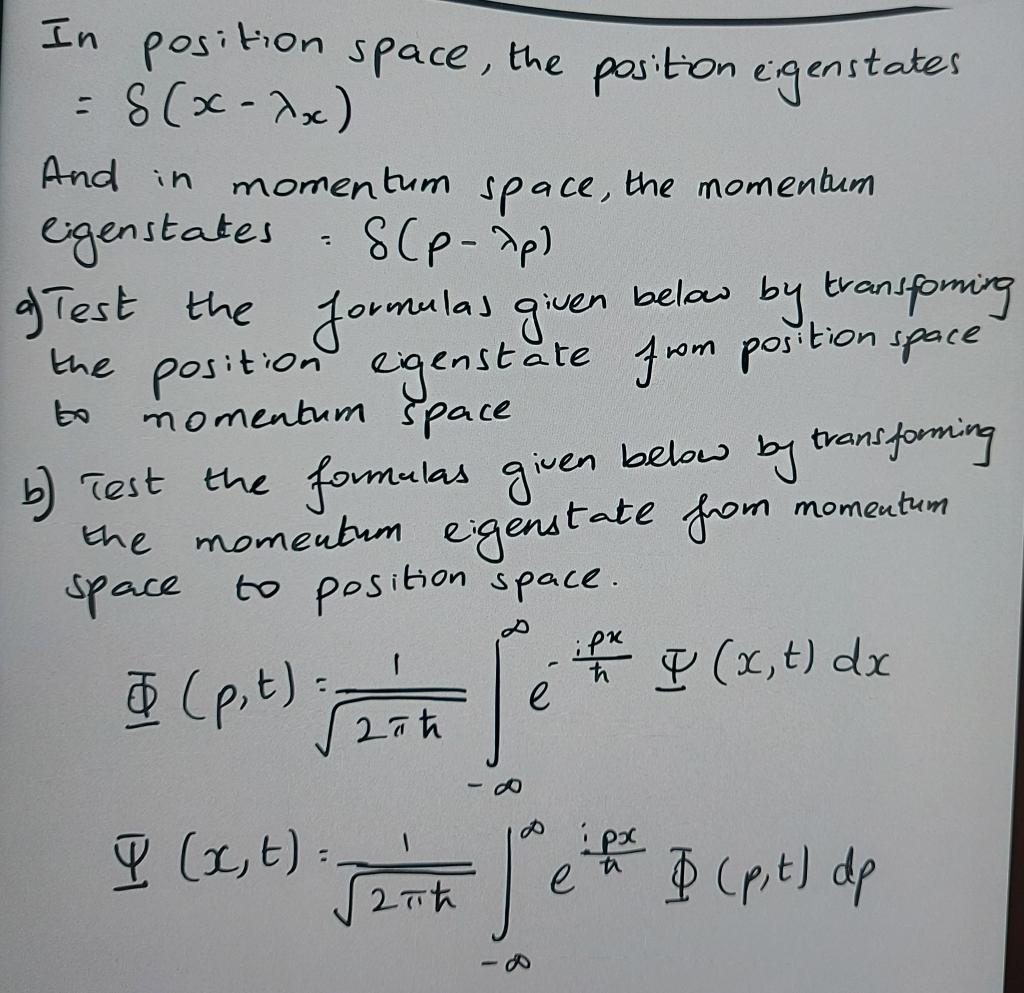 In position space, the position eigenstates
= δ(x - λx)
And in momentum space, the momentum
eigenstates = δ(p - λp)
a) Test the formulas given below by transfoming
the position eigenstate from position space
to momentum space
b) Test the formulas given below by transforming
the momentum eigenstate from momentum
space to position space.
Φ(p,t) = 1/√(2πħ) ∫_{-∞}^{∞} e^{-ipx/ħ} Ψ(x,t) dx
Ψ(x,t) = 1/√(2πħ) ∫_{-∞}^{∞} e^{ipx/ħ} Φ(p,t) dp